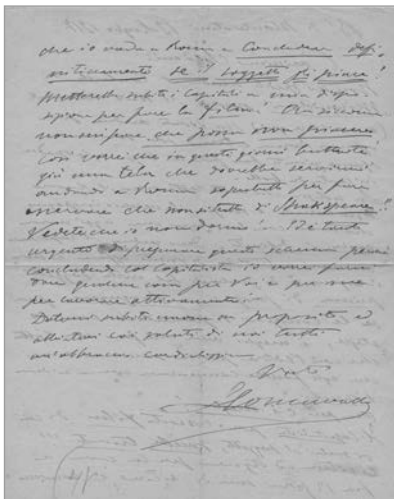 che io vada a Roma a concludere defi-
nitivamente se il soggetto gli piace!
Metterebbe subito i capitali a mia dispo-
sizione per fare la films! Ora siccome
non mi pare che possa non piacere
così vorrei che in questi giorni buttaste
giù una tela che dovrebbe servirmi
andando a Roma sopratutto per fare
osservare che non si tratta di Shakspeare!!
Vedete che io non dormo! È
urgente di preparare questo scenario perché
concludendo col capitalista io verrei
per Voi e per me
per lavorare attivamente!
Datemi subito in proposito ed
abbiatevi coi saluti di noi tutti
un'abbraccio cordialissimo
Vostro